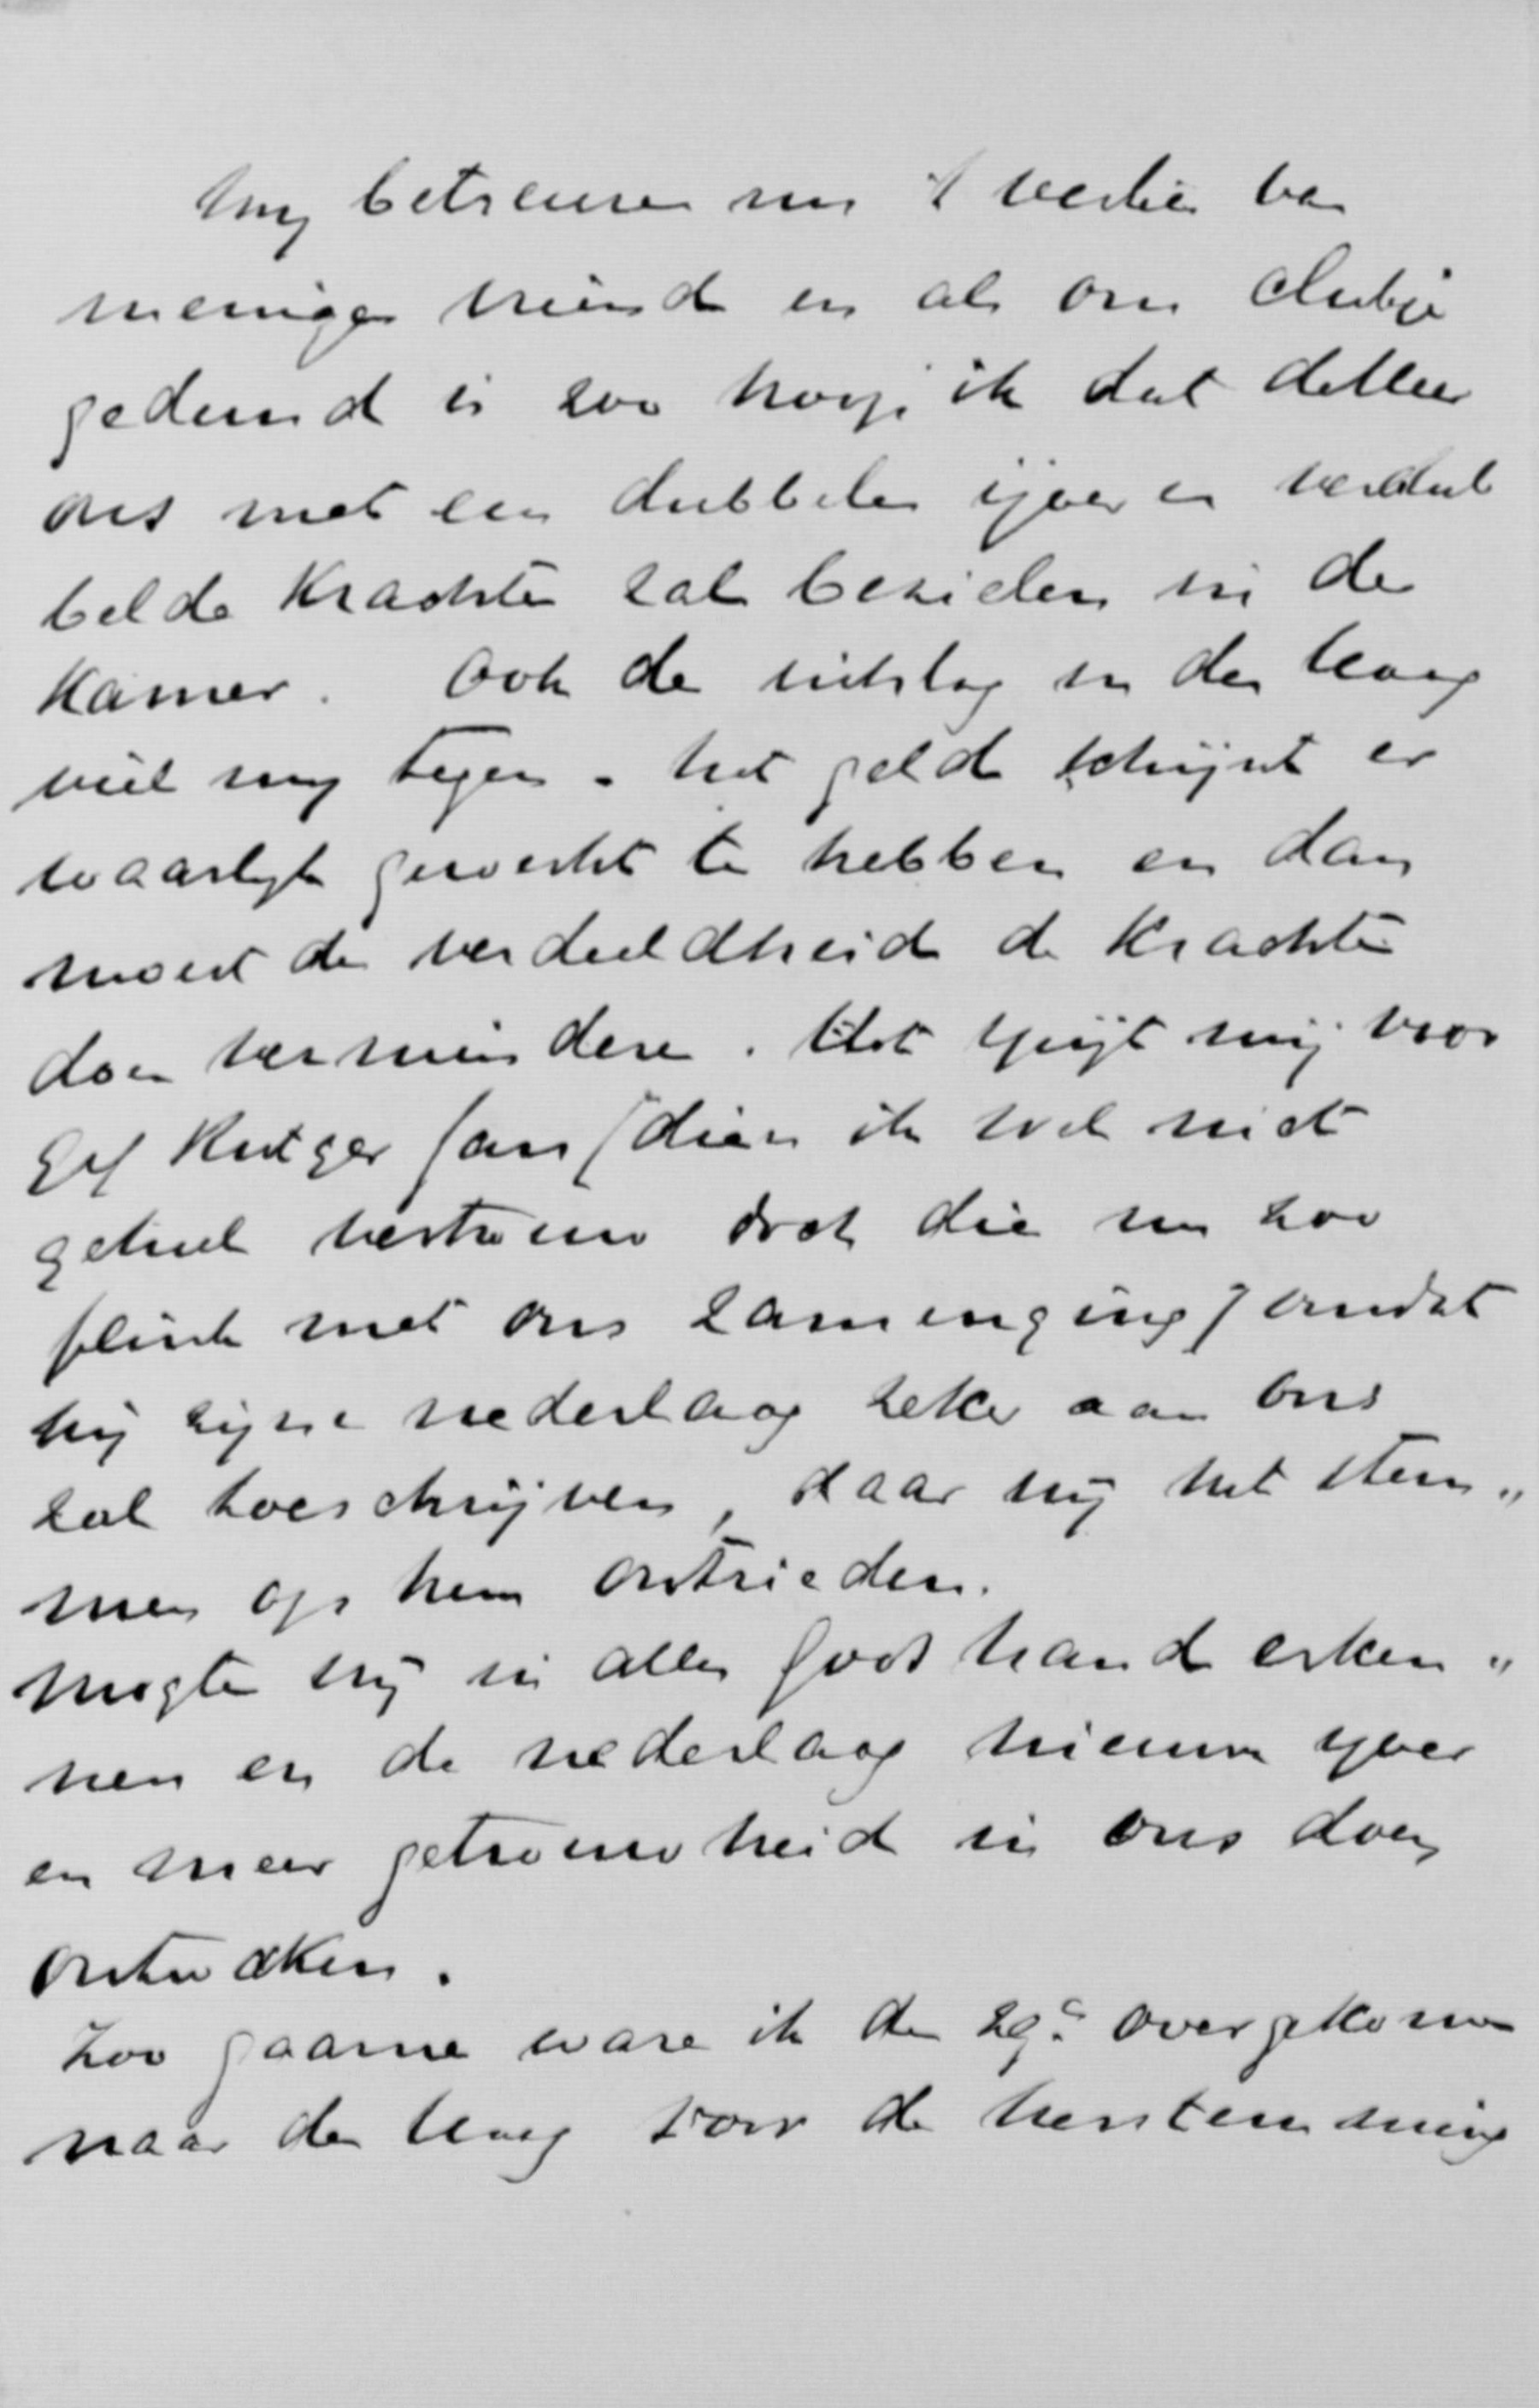 Wij betreuren nu 't verlies van
menigen vriend en als ons clubje
gedund is zoo hoop ik dat de Heer
ons met een dubbelen ijver en verdub
belde krachten zal bezielen in de
Kamer. Ook de uitslag in den Haag
viel mij tegen - het geld schijnt er
waarlijk gewerkt te hebben en dan
moest de verdeeldheid de krachten
doen verminderen. Het spijt mij voor
Rutger Jan (dien ik wel niet
geheel vertrouw doch die nu zoo
flink met ons zamenging) omdat
hij zijne nederlaag zeker aan ons
zal toeschrijven, daar wij het stem„
men op hem ontrieden.
Mogten wij in alles Gods hand erken„
nen en de nederlaag nieuwe ijver
en meer getrouwheid in ons doen
ontwaken.
Zoo gaarne ware ik den 29e overgekomen
naar den Haag voor de herstemming